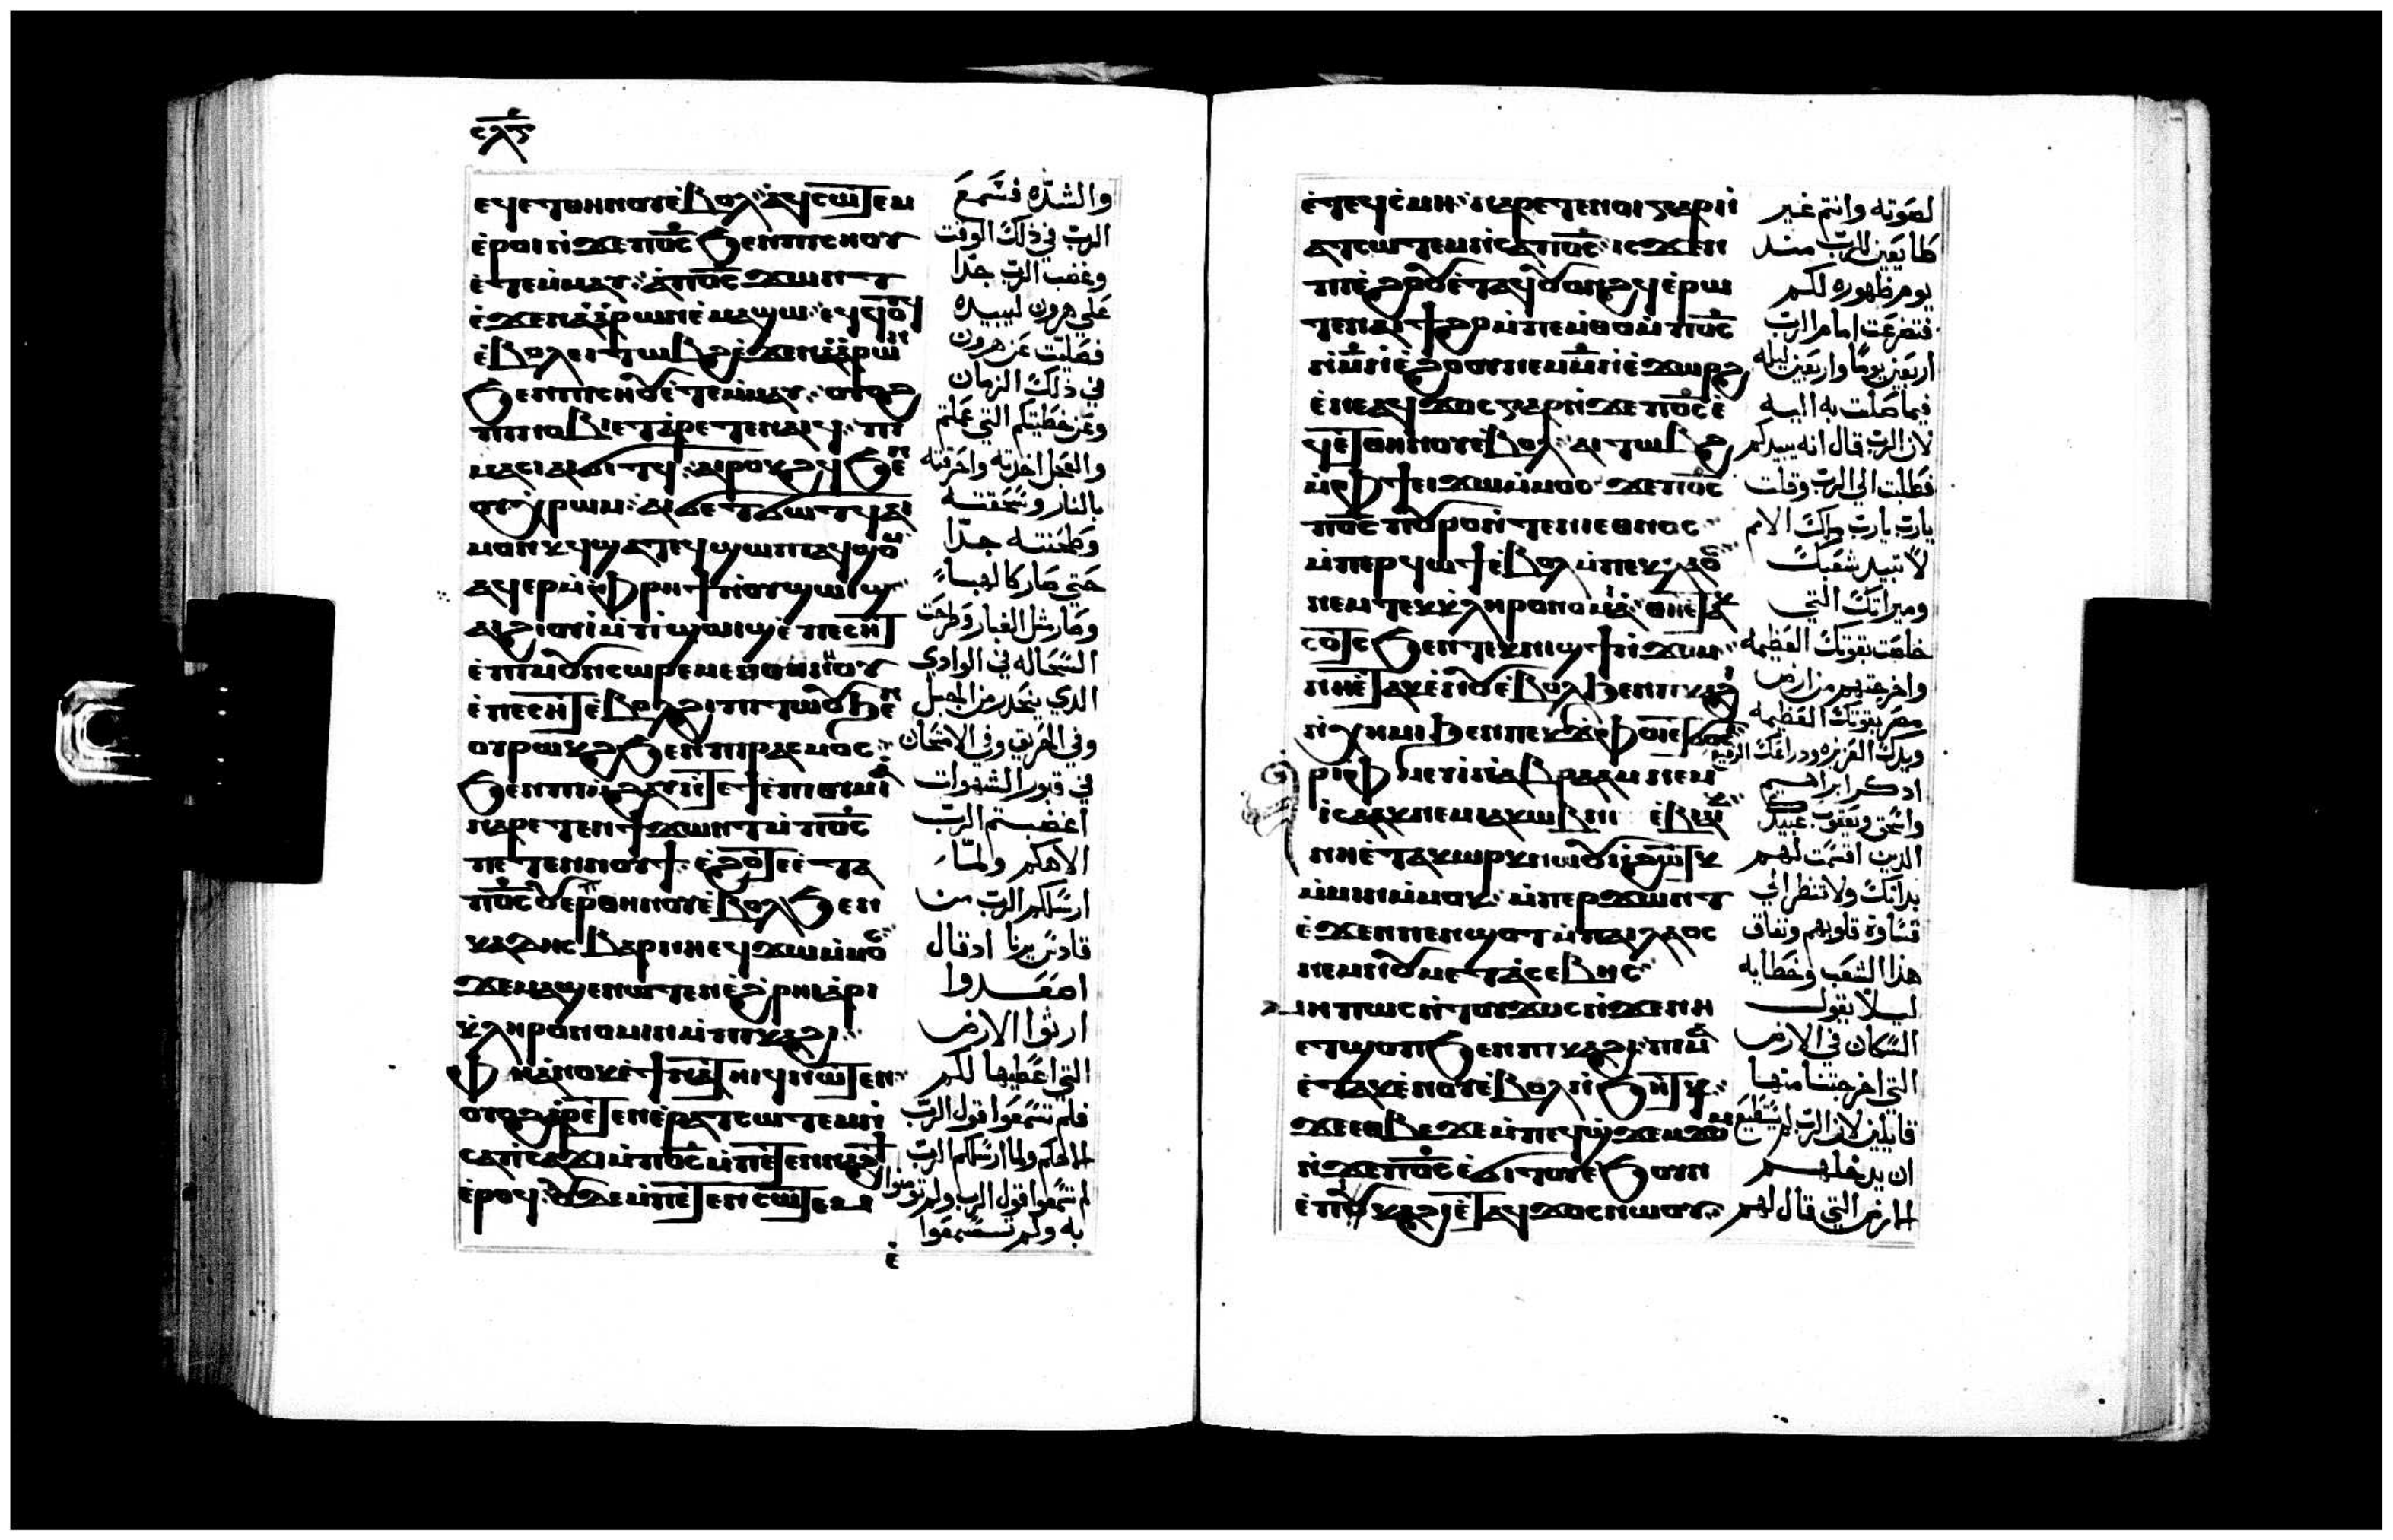 ⲥⲗⲋ
ⲉϥⲉⲧⲑⲏⲛⲟⲩ ⲉ̀ⲃⲟⲗ ⁖ ⲁϥⲥⲱⲧⲉⲙ
ⲉ̀ⲣⲟⲓ ⲛ̀ϫⲉ ⲡⲟ̅ⲥ̅ ϧⲉⲛ ⲡⲓⲥⲏⲟⲩ
ⲉ̀ⲧⲉⲙ̀ⲙⲁⲩ ⁖ ⲁ̀ ⲡⲟ̅ⲥ̅ ϫⲱⲛⲧ
ⲉ̀ϫⲉⲛ ⲁ̀ⲁ̀ⲣⲱⲛ ⲉ̀ⲙⲁϣⲱ ⁖ ⲉϥϥⲟⲧϥ
ⲉ̀ⲃⲟⲗ ⲉⲓⲧⲱⲃϩ ⲉ̀ϫⲉⲛ ⲁ̀ⲁ̀ⲣⲱⲛ
ϧⲉⲛ ⲡⲓⲥⲏⲟⲩ ⲉ̀ⲧⲉⲙ̀ⲙⲁⲩ ⁖ ⲟⲩⲟϩ
ⲡⲓⲛⲟⲃⲓ ⲉⲧⲁ̀ⲣⲉⲧⲉⲛⲁⲓϥ ⁖ ⲡⲓ
ⲙⲁⲥⲓ ⲁⲓϭⲓⲧϥ ⁖ ⲁⲓⲣⲟⲕϩϥ ϧⲉⲛ
ⲟⲩⲭ̀ⲣⲱⲙ ⁖ ⲁⲓϭⲉⲧϭⲱⲧϥ ⲁⲓ
ⲙⲟⲛⲕϥ ϣⲁⲧⲉϥϣⲱⲡⲓ ⲁϥϣⲟⲙ
ⲁϥⲉⲣ ⲙ̀ⲫ̀ⲣⲏϯ ⲛ̀ⲟⲩϣⲱⲓϣ ⁖
ⲁⲓϩⲓⲟⲩⲓ̀ ⲙ̀ⲡⲓϣⲱⲓϣ ⲉ̀ⲡⲉⲥⲏⲧ
ⲉ̀ⲡⲓⲙⲟⲩⲛⲥⲱⲣⲉⲙ ⲉⲑⲛⲏⲟⲩ
ⲉ̀ⲡⲉⲥⲏⲧ ⲉ̀ⲃⲟⲗϩⲓ ⲡⲓⲧⲱⲟⲩ ϧⲉⲛ
ⲟⲩⲣⲱⲕϩ ϧⲉⲛ ⲡⲓⲣⲁⲥⲙⲟⲥ ⁖
ϧⲉⲛ ⲡⲓⲙ̀ϩⲁⲩ ⲛ̀ⲧⲉ ϯⲉ̀ⲡⲓⲑⲩⲙⲓⲁ
ⲛⲁⲣⲉⲧⲉⲛϯϫⲱⲛⲧ ⲙ̀ⲡⲟ̅ⲥ̅
ⲡⲉⲧⲉⲛⲛⲟⲩϯ ⁖ ⲉ̀ϩⲟⲧⲉ ⲉ̀ⲧⲁ
ⲡⲟ̅ⲥ̅ ⲟⲩⲉⲣⲡⲑⲏⲛⲟⲩ ⲉ̀ⲃⲟⲗ ϧⲉⲛ
ⲕⲁⲇⲏⲥ ⲃⲁⲣⲛⲏ ⲉϥϫⲱ ⲙ̀ⲙⲟⲥ
ϫⲉ ⲙⲁϣⲉⲛⲱⲧⲉⲛ ⲉ̀ϩ̀ⲣⲏⲓ ⲁ̀ⲣⲓ
ⲕ̀ⲗⲏⲣⲟⲛⲟⲙⲓⲛ ⲙ̀ⲡⲓⲕⲁϩⲓ ⁖
ⲫⲏ ⲁ̀ⲛⲟⲕ ⲉ̀ϯⲛⲁⲧⲏⲓϥ ⲛⲱⲧⲉⲛ ⁖
ⲟⲩⲟϩ ⲁ̀ⲣⲉⲧⲉⲛⲉ̀ⲣⲁⲧⲥⲱⲧⲉⲙ ⲛ̀
ⲥⲁ ⲡ̀ⲥⲁϫⲓ ⲙ̀ⲡⲟ̅ⲥ̅ ⲙ̀ⲡⲉⲧⲉⲛⲛⲁϩϯ
ⲉ̀ⲣⲟϥ ⁖ ⲟⲩⲇⲉ ⲙ̀ⲡⲉⲧⲉⲛⲥⲱⲧⲉⲙ
ⲉ̀
والشدّه فسَمعَ
الربّ في ذلكَ الوقت
وغضب الربّ جدًا
عَلي هرون ليبيده
فصَليّت عَن هرون
في ذلكَ الزمان
وعَن خطيتكم التي عَملتم
والعجل اخذته واحَرقته
بالنار وسَحَقتـه
وطحَنتـه جدّا
حَتي صَار كالهبـاء
وصَار مثل الغبار وطرحَت
السَحَاله في الوادي
الذي ينحَدر من الجبل
وفي الحَريق وفي الامتحَان
في قبور الشهوات
اغضبـتم الربّ
الاهكم ولمّـا
ارسَلكم الربّ من
قادس برنا اذ قال
اصعَـدوا
ارثوا الارض
التي اعَطيها لكم
فلم تسَمعَوا قول الربّ
الاهكم ولما ارسَلكم الربّ
لم تسَمعَوا قول الرب ولم تومنوا
به ولم تسـتمعَوا
ⲉ̀ⲧⲉϥⲥ̀ⲙⲏ ⁖ ⲛⲁⲣⲉⲧⲉⲛⲟⲓ ⲅⲁⲣ ⲛ̀
ⲁⲧⲥⲱⲧⲉⲙ ⲛ̀ⲥⲁ ⲡⲟ̅ⲥ̅ ⁖ ⲓⲥϫⲉⲛ
ⲡⲓⲉ̀ϩⲟⲟⲩ ⲉ̀ⲧⲁϥⲟⲩⲟⲛϩϥ ⲉ̀ⲣⲱ
ⲧⲉⲛ ⲁⲓϯϩⲟ ⲙ̀ⲡⲉⲙ̀ⲑⲟ ⲙ̀ⲡⲟ̅ⲥ̅
ⲛ̀ⲙ̅ ⲛ̀ⲉ̀ϩⲟⲟⲩ ⲛⲉⲙ ⲙ̅ ⲛ̀ⲉ̀ϫⲱⲣϩ
ⲉ̀ⲛⲉ ⲁϥϫⲟⲥ ⲅⲁⲣ ⲛ̀ϫⲉ ⲡⲟ̅ⲥ̅ ⲉ̀
ϥⲉⲧⲑⲏⲛⲟⲩ ⲉ̀ⲃⲟⲗ ⁖ ⲁⲓⲧⲱⲃϩ
ⲙ̀ⲫϯ ⲉⲓϫⲱ ⲙ̀ⲙⲟⲥ ϫⲉ ⲡⲟ̅ⲥ̅
ⲡⲟ̅ⲥ̅ ⲡⲟⲩⲣⲟ ⲛ̀ⲧⲉ ⲛⲓⲉⲑⲛⲟⲥ ⁖
ⲙ̀ⲡⲉⲣϥⲱϯ ⲉ̀ⲃⲟⲗ ⲙ̀ⲡⲉⲕⲗⲁⲟⲥ ⁖
ⲛⲉⲙ ⲧⲉⲕⲕ̀ⲗⲏⲣⲟⲛⲟⲙⲓⲁ ⁖ ⲑⲏ ⲉ̀ⲧⲁⲕ
ⲥⲟⲧⲥ ϧⲉⲛ ⲧⲉⲕⲛⲓϣϯ ⲛ̀ϫⲟⲙ ⁖
ⲛⲏ ⲉ̀ⲧⲁⲕⲉ̀ⲛⲟⲩ ⲉ̀ⲃⲟⲗ ϧⲉⲛ ⲡⲓⲕⲁϩⲓ
ⲛ̀ⲭⲏⲙⲓ ϧⲉⲛ ⲡⲉⲕϫ̀ⲫⲟⲓ ⲉⲧϭⲟⲥⲓ ⁖
ⲁ̀ⲣⲓⲫ̀ⲙⲉⲩⲓ̀ ⲛ̀ⲁⲃⲣⲁⲁⲙ ⲛⲉⲙ
ⲓⲥⲁⲁⲕ ⲛⲉⲙ ⲓⲁⲕⲱⲃ ⲛⲓⲉ̀ⲃⲓⲁⲓⲕ ⁖
ⲛⲏ ⲉ̀ⲧⲁⲕⲱⲣⲕ ⲛⲱⲟⲩ ⲛ̀ϩⲣⲏⲓ ⲛ̀ϧⲏⲧⲕ
ⲙ̀ⲙⲓⲛ ⲙ̀ⲙⲟⲕ ⁖ ⲙ̀ⲡⲉⲣϫⲱⲛⲧ
ⲉ̀ϫⲉⲛ ⲡⲉⲛϣⲟⲧ ⲙ̀ⲡⲁⲓⲗⲁⲟⲥ
ⲛⲉⲙ ⲛⲟⲩⲙⲉⲧⲁ̀ⲥⲉⲃⲏⲥ ⁖
ⲙⲏⲡⲱⲥ ⲛ̀ⲧⲟⲩϫⲟⲥ ⲛ̀ϫⲉ ⲛⲏ
ⲉⲧϣⲟⲡ ϧⲉⲛ ⲡⲓⲕⲁϩⲓ ⁖ ⲡⲓⲙⲁ
ⲉ̀ⲧⲁⲕⲉ̀ⲛⲟⲩ ⲉ̀ⲃⲟⲗ ⲛ̀ϧⲏⲧϥ ⁖
ϫⲉ ⲉⲑⲃⲉ ϫⲉ ⲙ̀ⲡⲉϥϣ̀ϫⲉⲙϫⲟⲙ
ⲛ̀ϫⲉ ⲡⲟ̅ⲥ̅ ⲉ̀ϭⲓⲧⲟⲩ ⲉ̀ϧⲟⲩⲛ
ⲉ̀ⲡⲟⲩⲕⲁϩⲓ ⲉ̀ⲧⲁϥϫⲟⲥ ⲛⲱⲟⲩ ⁖
لصَوته وانتم غير
طايعَين للربّ منـذ
يوم ظهوره لكم
فتضرعَت امام الربّ
اربعَين يومًا واربعَين ليله
فيما صَليت به اليـه
لان الربّ قال انه يبيدكم
فطلبت الي الربّ وقلت
ياربّ ياربّ ملكَ الامم
لا تبيد شعَبكَ
وميراثكَ التي
خلصَت بقوتكَ العَظيمه
واخرجتهم من ارض
مصَر بقوتكَ العَظيمه
ويدكَ العَزيزه وذراعَكَ الرفيع
اذكـر ابراهـيم
واسَحق ويعَقوب عَبيدكَ
الذين اقسَمت لهـم
بذاتكَ ولا تنظر الي
قسَاوة قلوبهم ونفاق
هذا الشعَب وخطاياه
ليـلا يقولـ
السَكان في الارض
التي اخرجتنـا منهـا
قايلين لان الربّ لم يسَتطيعَ
ان يدخلهـم
الارض التي قال لهم